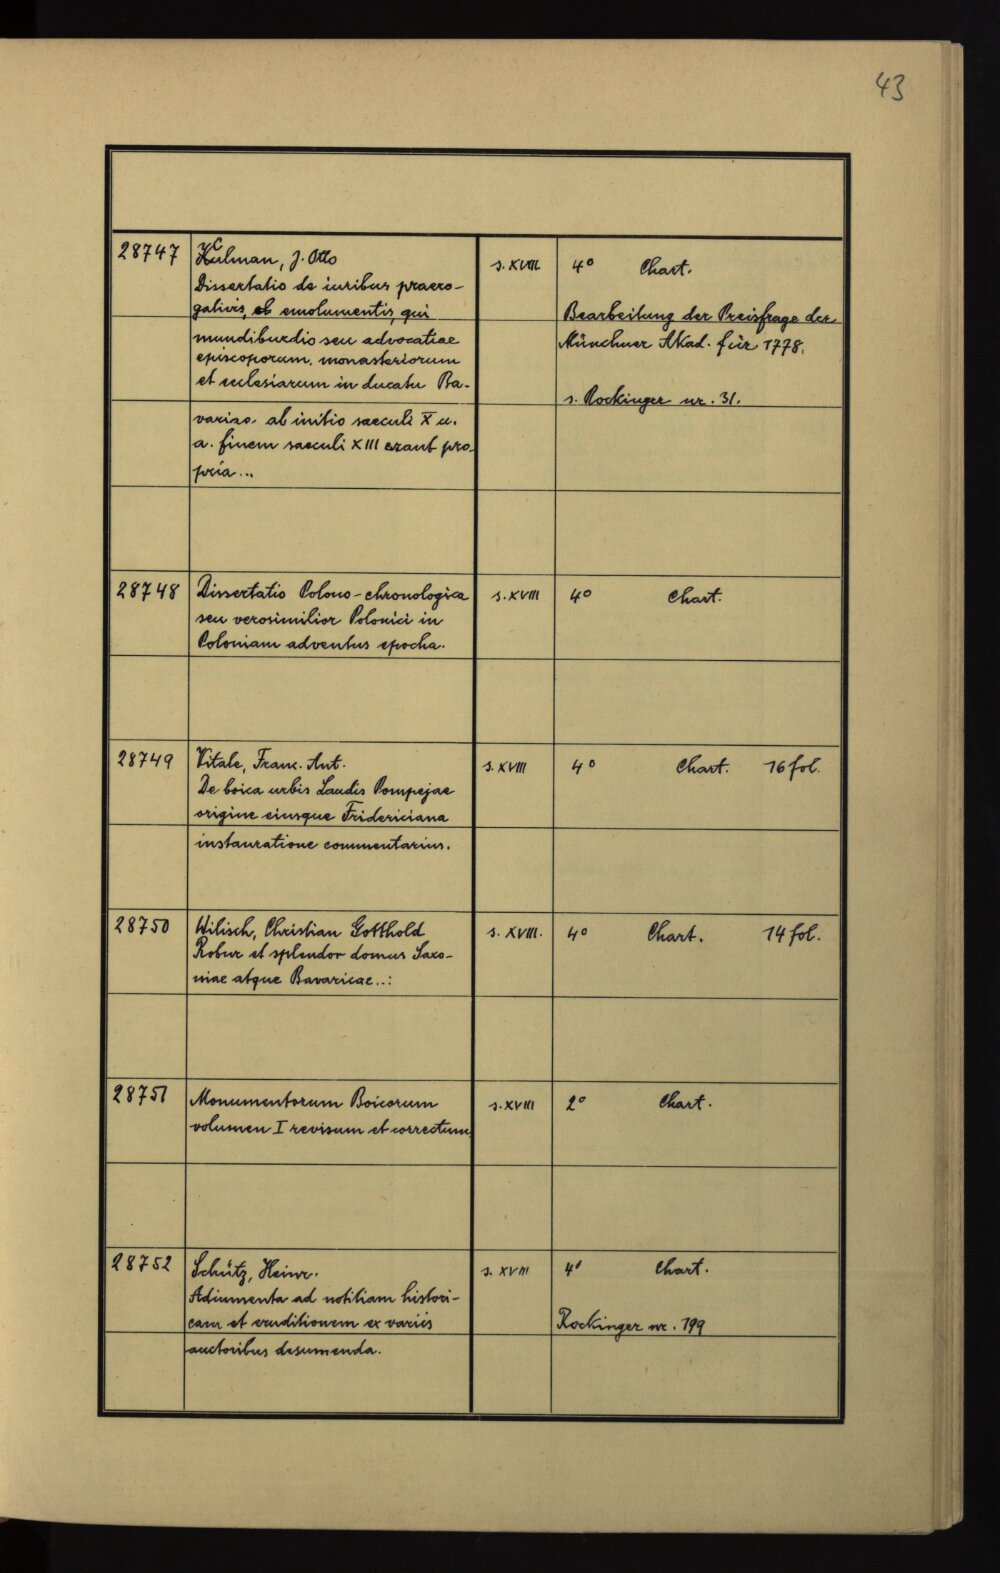 43
28747 Kulman, J. Otto s. XVIII. 4° Chart.
Dissertatio de iuribus praero-
gativis, et emolumentis, qui Bearbeitung der Preisfrage der
mundiburdio seu advocatiae Münchner Akad. für 1778.
episcoporum, monasteriorum
et ecclesiarum in ducatu Ba- s. Rockinger nr. 31.
variae ab initio saeculi X u.
a. finem saeculi XIII erant pro-
pria...
28748 Dissertatio Polono-chronologica s. XVIII 4° Chart.
seu verosimilior Polonici in
Poloniam adventus epocha.
28749 Vitale, Franc. Ant. s. XVIII 4° Chart. 16 fol.
De boica urbis Laudis Pompejae
origine eiusque Fridericiana
instauratione commentarius.
28750 Wilisch, Christian Gotthold s. XVIII. 4° Chart. 14 fol.
Robur et splendor domus Saxo-
niae atque Bavaricae..:
28751 Monumentorum Boicorum s. XVIII 2° Chart.
volumen I revisum et correctum
28752 Schütz, Heinr. s. XVIII 4° Chart.
Adiumenta ad notitiam histori-
cam et eruditionem ex variis Rockinger nr. 199
auctoribus desumenda.